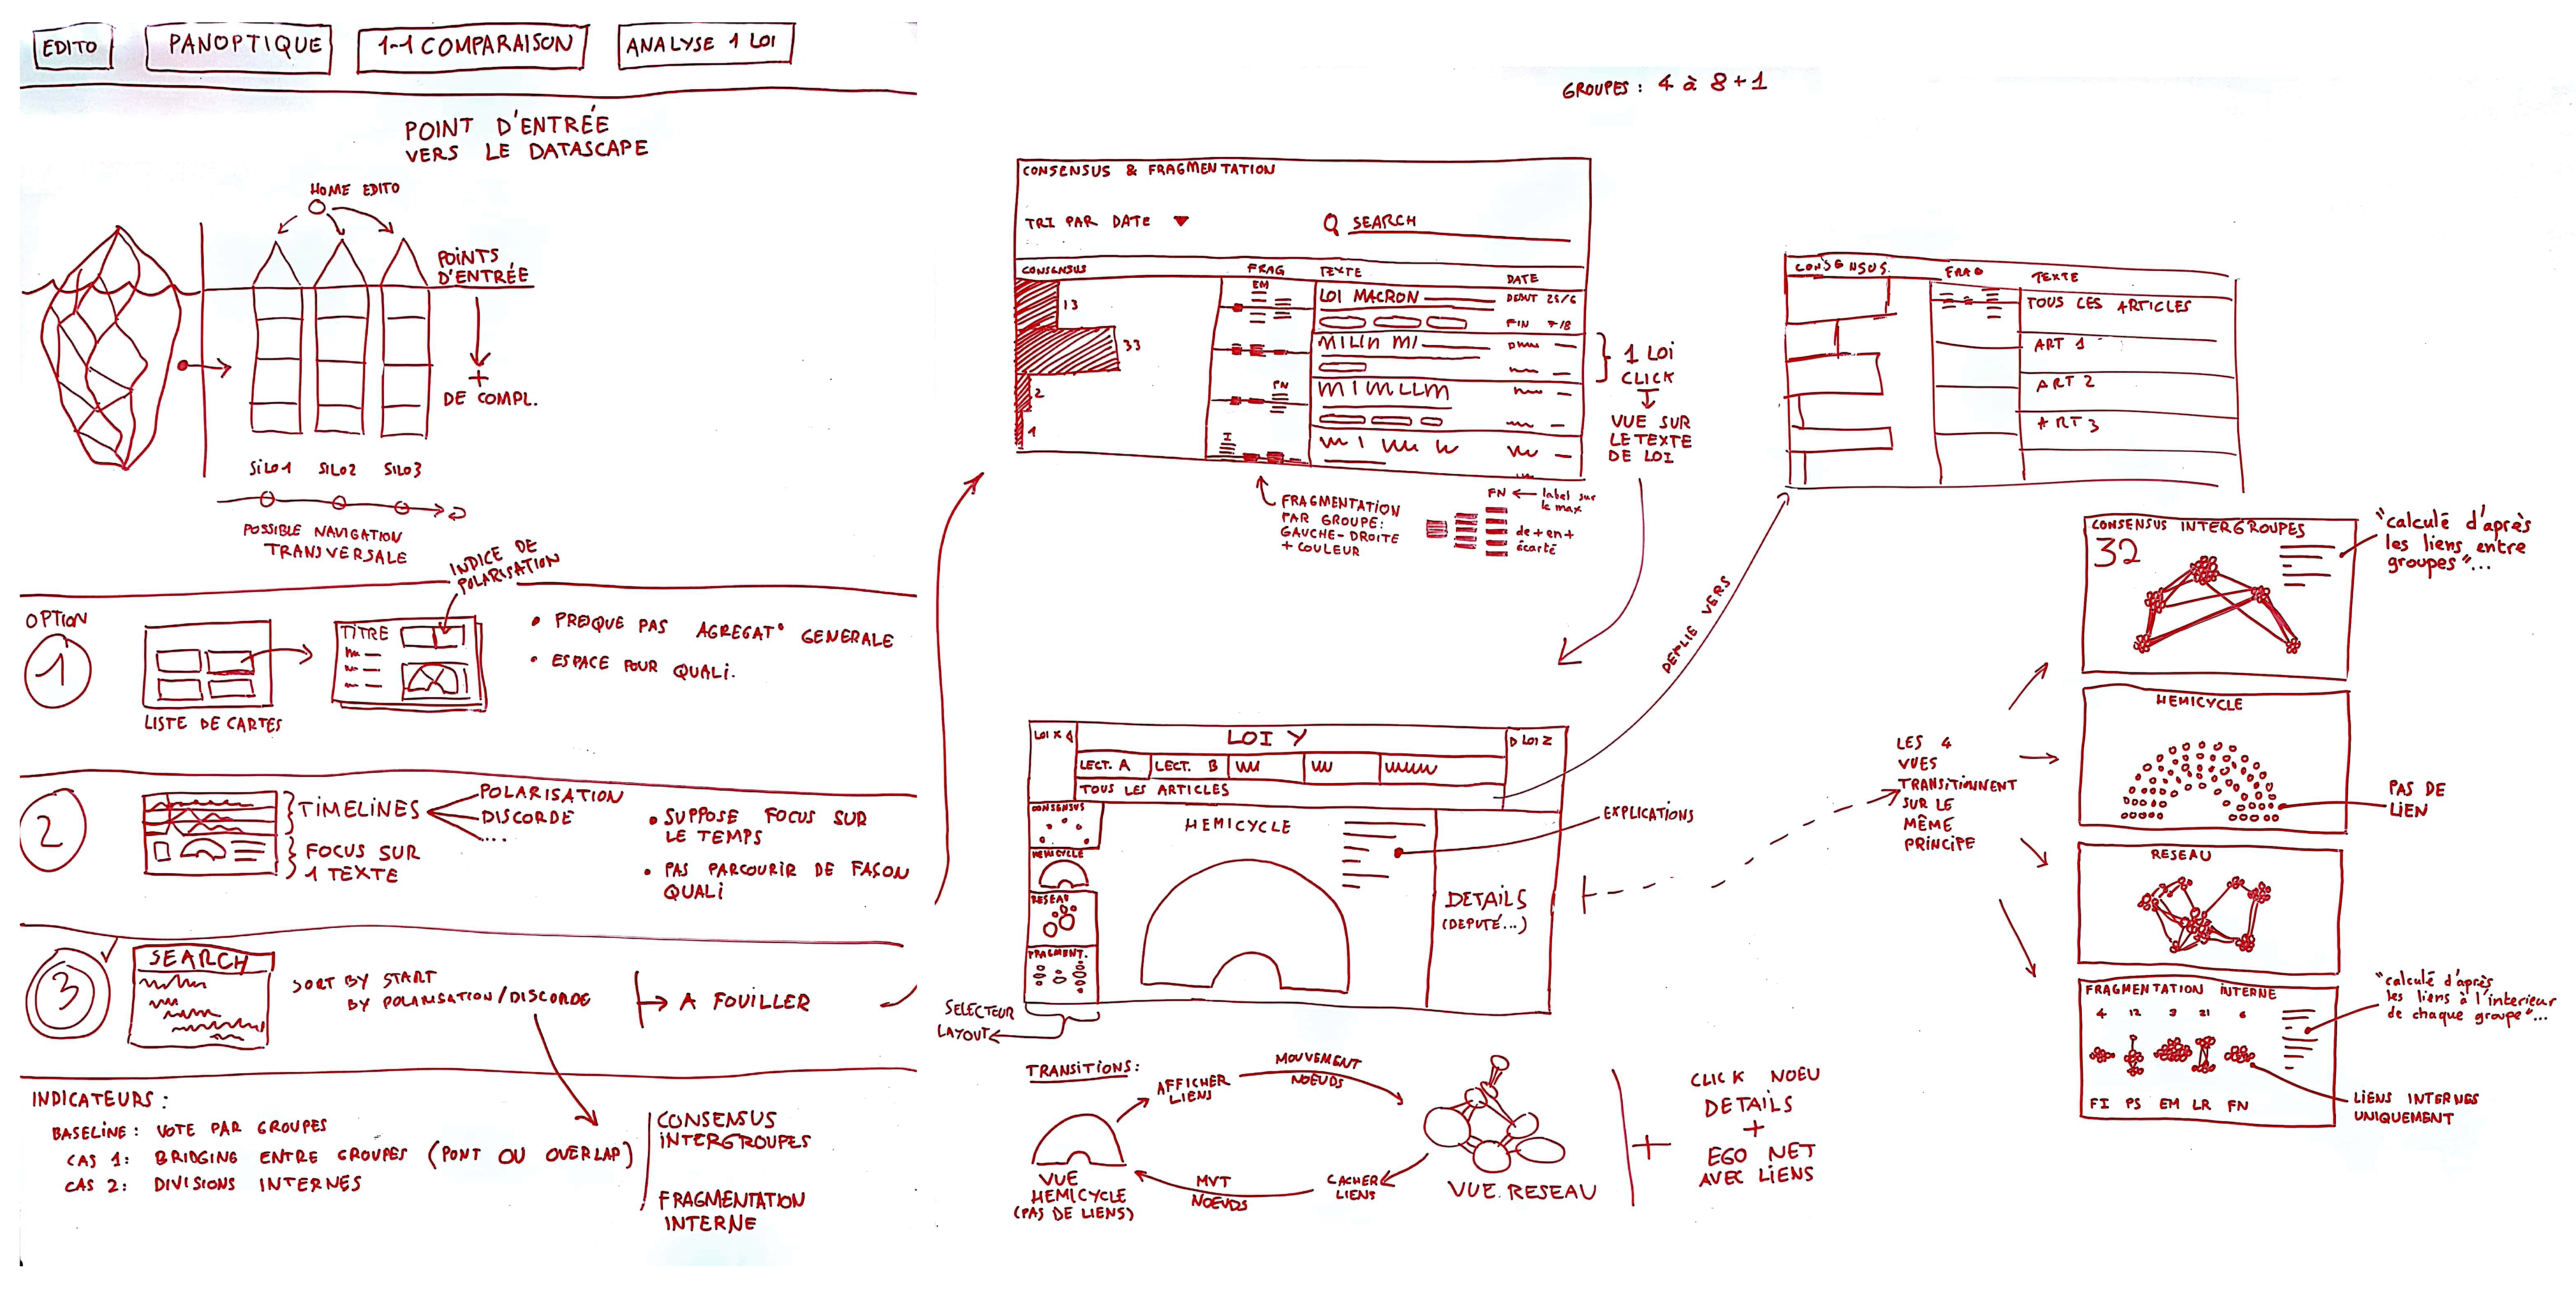 EDITO
PANOPTIQUE
1-1 COMPARAISON
ANALYSE 1 LOI
POINT D'ENTRÉE
VERS LE DATASCAPE
HOME EDITO
POINTS
D'ENTRÉE
+
DE COMPL.
SILO1
SILO2
SILO3
POSSIBLE NAVIGATION
TRANSVERSALE
INDICE DE
POLARISATION
OPTION
1
TITRE
LISTE DE CARTES
• PRESQUE PAS AGREGAT° GENERALE
• ESPACE POUR QUALI.
2
TIMELINES
POLARISATION
DISCORDE
....
FOCUS SUR
1 TEXTE
• SUPPOSE FOCUS SUR
LE TEMPS
• PAS PARCOURIR DE FAÇON
QUALI
3
SEARCH
SORT BY START
BY POLARISATION/DISCORDE
A FOUILLER
INDICATEURS :
BASELINE : VOTE PAR GROUPES
CAS 1: BRIDGING ENTRE GROUPES (PONT OU OVERLAP)
CAS 2: DIVISIONS INTERNES
CONSENSUS
INTERGROUPES
FRAGMENTATION
INTERNE
GROUPES : 4 à 8+1
CONSENSUS & FRAGMENTATION
TRI PAR DATE
SEARCH
CONSENSUS
FRAG
TEXTE
DATE
13
EM
LOI MACRON
DEBUT 25/6
FIN 7/8
33
2
FN
1
I
1 LOI
CLICK
VUE SUR
LE TEXTE
DE LOI
FRAGMENTATION
PAR GROUPE:
GAUCHE-DROITE
+ COULEUR
FN
label sur
le max
de + en +
écarté
CONSENSUS
FRAG
TEXTE
TOUS LES ARTICLES
ART 1
ART 2
ART 3
DEPLIE VERS
LOI X
LOI Y
LOI Z
LECT. A
LECT. B
TOUS LES ARTICLES
CONSENSUS
HEMICYCLE
RESEAU
FRAGMENT.
HEMICYCLE
EXPLICATIONS
DETAILS
(DEPUTÉ...)
SELECTEUR
LAYOUT
TRANSITIONS :
AFFICHER
LIENS
MOUVEMENT
NOEUDS
VUE
HEMICYCLE
(PAS DE LIENS)
MVT
NOEUDS
CACHER
LIENS
VUE RESEAU
+
CLICK NOEU
DETAILS
+
EGO NET
AVEC LIENS
LES 4
VUES
TRANSITIONNENT
SUR LE
MÊME
PRINCIPE
CONSENSUS INTERGROUPES
32
"calculé d'après
les liens entre
groupes"...
HEMICYCLE
PAS DE
LIEN
RESEAU
FRAGMENTATION INTERNE
4 12 9 21 6
FI PS EM LR FN
"calculé d'après
les liens à l'interieur
de chaque groupe"...
LIENS INTERNES
UNIQUEMENT